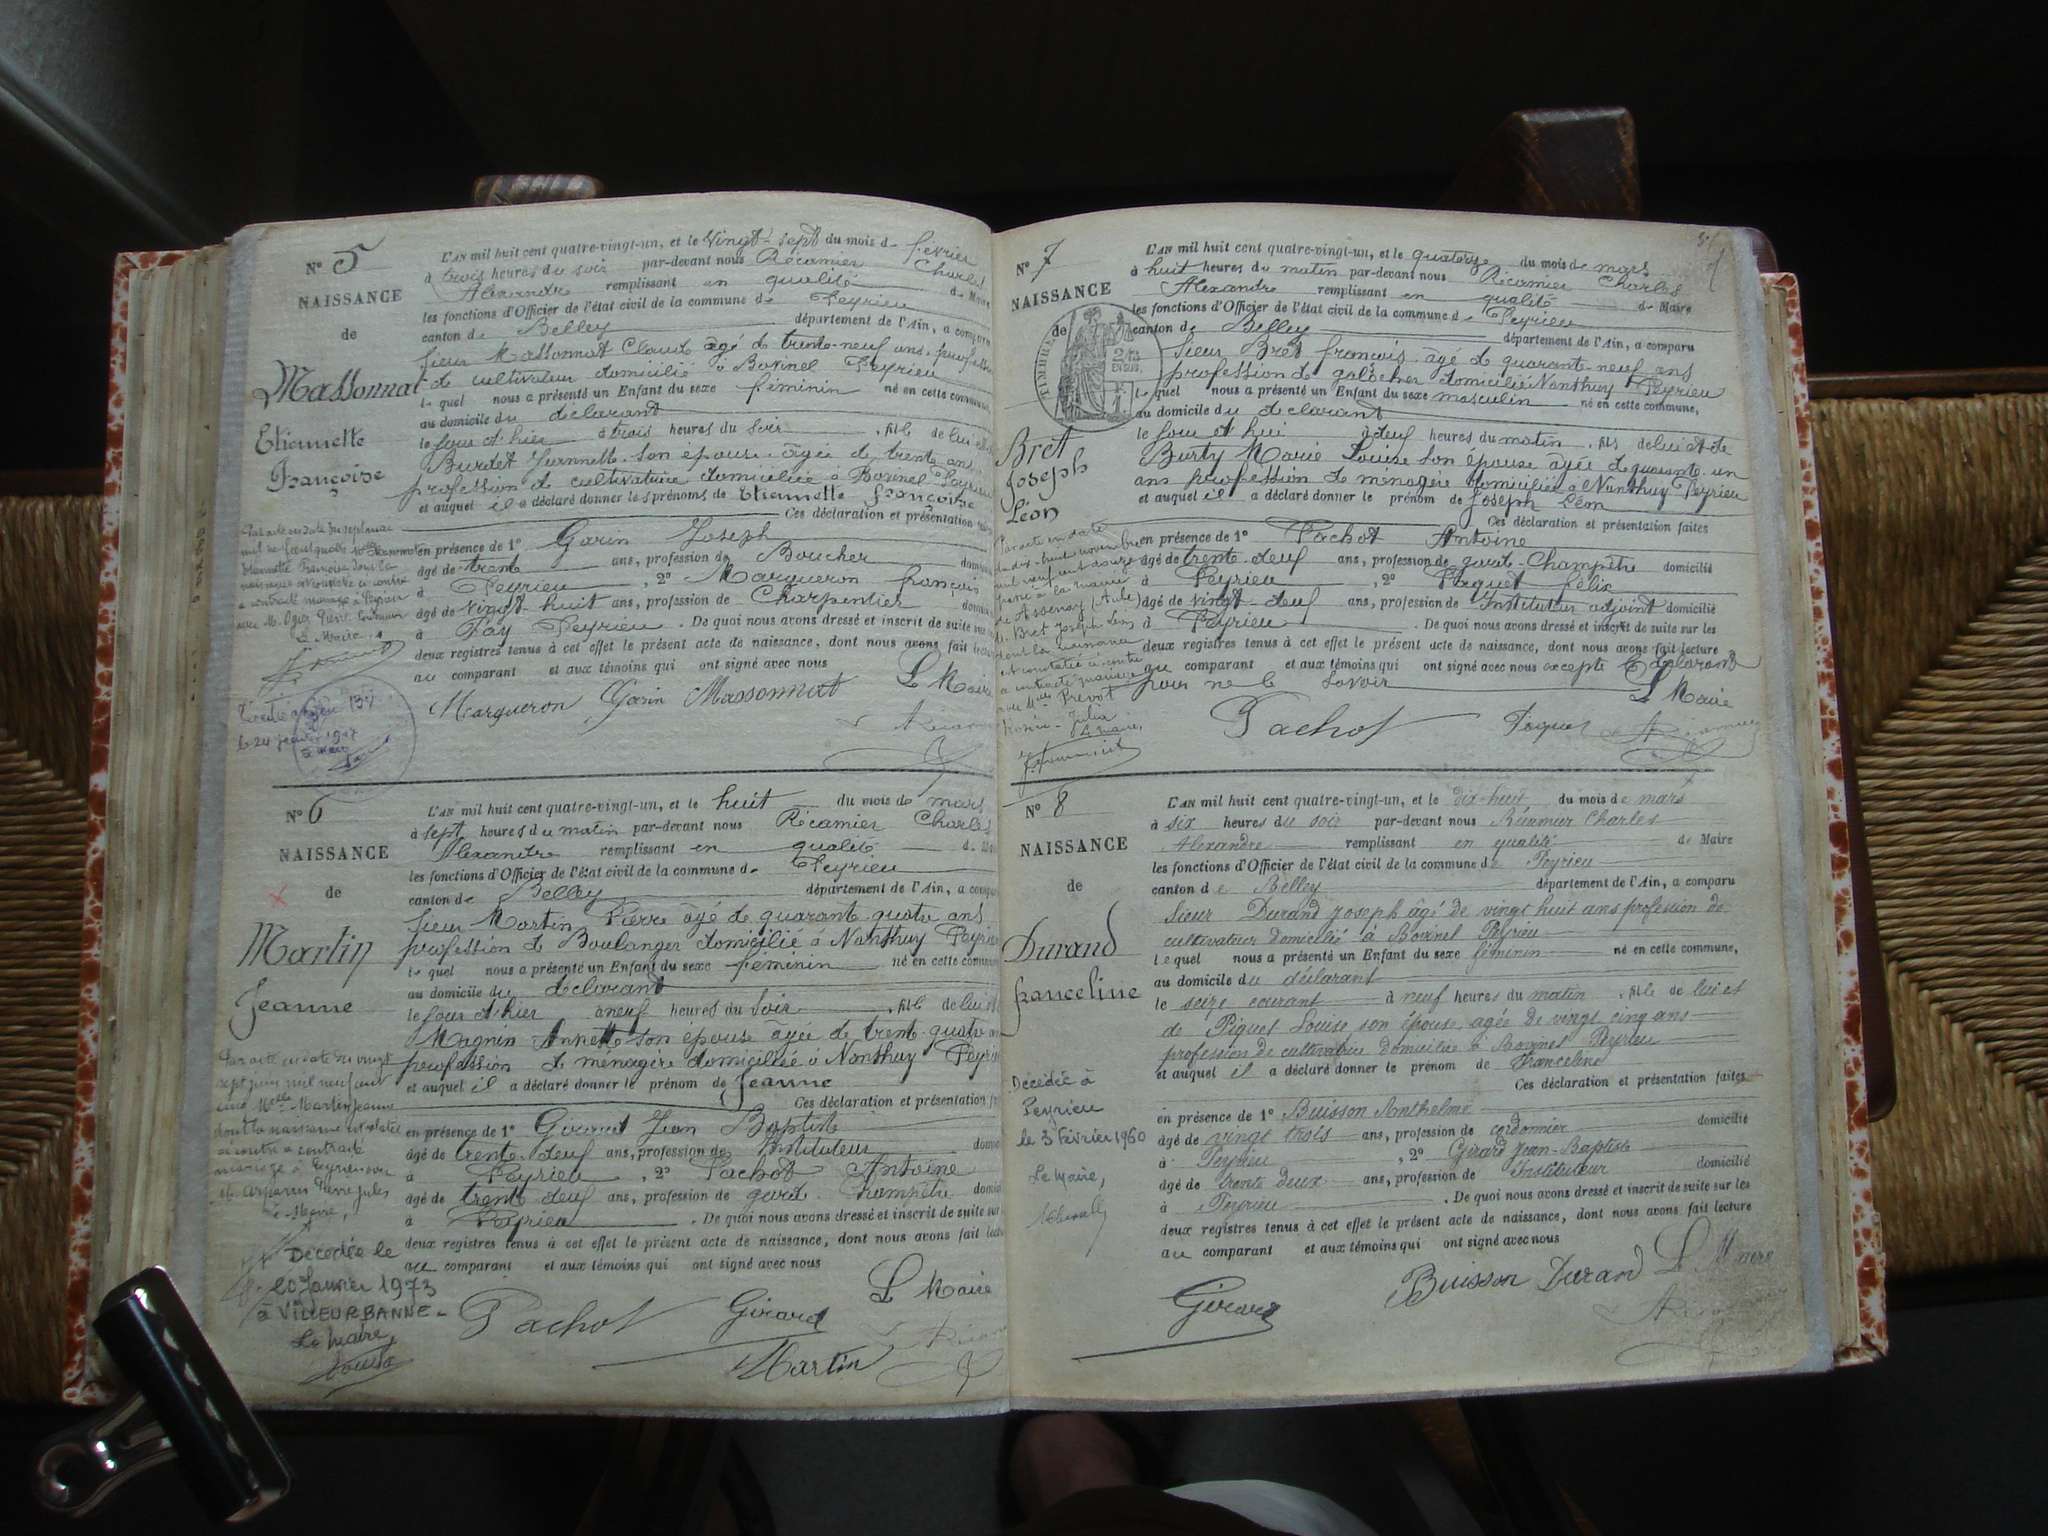 N° 5
NAISSANCE
de
Massonnat
Etiennette
Françoise
L'AN mil huit cent quatre-vingt-un, et le Vingt-sept du mois de février
à trois heures du soir par-devant nous Récamier Charles
Alexandre remplissant en qualité de Maire
les fonctions d'Officier de l'état civil de la commune de Peyrieu
canton de Belley département de l'Ain, a comparu
Sieur Massonnat Claude âgé de trente-neuf ans, profession
de cultivateur domicilié à Bovinel Peyrieu
lequel nous a présenté un Enfant du sexe féminin né en cette commune,
au domicile du déclarant
le jour d'hier à trois heures du soir, fille de lui et de
Burdet Jeannette son épouse âgée de trente ans
profession de cultivatrice domiciliée à Bovinel Peyrieu
et auquel il a déclaré donner les prénoms de Etiennette Françoise
Ces déclaration et présentation
en présence de 1° Garin Joseph
âgé de trente ans, profession de Boucher
à Peyrieu, 2° Margueron françois
âgé de Vingt huit ans, profession de Charpentier
à Fay Peyrieu. De quoi nous avons dressé et inscrit de suite
deux registres tenus à cet effet le présent acte de naissance, dont nous avons fait lecture
au comparant et aux témoins qui ont signé avec nous
Margueron Garin Massonnat Le Maire
N° 6
NAISSANCE
de
Martin
Jeanne
sept juin mil neuf cent
cinq Melle Martin Jeanne
dont la naissance est relatée
ci contre a contracté
mariage à Peyrieu avec
Décédée le
20 Janvier 1973
à VILLEURBANNE-
Le Maire
L'AN mil huit cent quatre-vingt-un, et le huit du mois de mars
à sept heures du matin par-devant nous Récamier Charles
Alexandre remplissant en qualité
les fonctions d'Officier de l'état civil de la commune de Peyrieu
canton de Belley département de l'Ain, a comparu
Sieur Martin Pierre âgé de quarante-quatre ans
profession de Boulanger domicilié à Nanthuy Peyrieu
lequel nous a présenté un Enfant du sexe féminin né en cette commune
au domicile du déclarant
le jour d'hier à neuf heures du soir, fille de lui et
Magnin Annette son épouse âgée de trente quatre ans
profession de ménagère domiciliée à Nanthuy Peyrieu
et auquel il a déclaré donner le prénom de Jeanne
Ces déclaration et présentation
en présence de 1° Girard Jean Baptiste
âgé de trente-deux ans, profession de Instituteur
à Peyrieu, 2° Pachot Antoine
âgé de trente deux ans, profession de garde Champêtre
à Peyrieu. De quoi nous avons dressé et inscrit de suite sur
deux registres tenus à cet effet le présent acte de naissance, dont nous avons fait lecture
au comparant et aux témoins qui ont signé avec nous
Le Maire
Pachot Girard
Martin
N° 7
NAISSANCE
de
Bret
Joseph
Léon
L'AN mil huit cent quatre-vingt-un, et le quatorze du mois de mars
à huit heures du matin par-devant nous Récamier Charles
Alexandre remplissant en qualité de Maire
les fonctions d'Officier de l'état civil de la commune de Peyrieu
canton de Belley département de l'Ain, a comparu
Sieur Bret françois âgé de quarante-neuf ans
profession de galocher domicilié Nanthuy Peyrieu
lequel nous a présenté un Enfant du sexe masculin né en cette commune,
au domicile du déclarant
le jour d'hui à deux heures du matin, fils de lui et de
Burty Marie Louise son épouse âgée de quarante-un
ans profession de ménagère domiciliée à Nanthuy Peyrieu
et auquel il a déclaré donner le prénom de Joseph Léon
Ces déclaration et présentation faites
en présence de 1° Pachot Antoine
âgé de trente-deux ans, profession de garde-Champêtre domicilié
à Peyrieu, 2° Paquet félix
âgé de vingt-deux ans, profession de Instituteur adjoint domicilié
à Peyrieu. De quoi nous avons dressé et inscrit de suite sur les
deux registres tenus à cet effet le présent acte de naissance, dont nous avons fait lecture
au comparant et aux témoins qui ont signé avec nous excepté le déclarant
pour ne le savoir
Le Maire
Pachot Paquet
N° 8
NAISSANCE
de
Durand
franceline
Décédée à
Peyrieu
le 3 Février 1960
Le Maire,
L'AN mil huit cent quatre-vingt-un, et le dix-huit du mois de mars
à six heures du soir par-devant nous Récamier Charles
Alexandre remplissant en qualité de Maire
les fonctions d'Officier de l'état civil de la commune de Peyrieu
canton de Belley département de l'Ain, a comparu
Sieur Durand Joseph âgé de vingt huit ans profession de
cultivateur domicilié à Bovinel Peyrieu
lequel nous a présenté un Enfant du sexe féminin né en cette commune,
au domicile du déclarant
le seize courant à neuf heures du matin, fille de lui et
de Piquet Louise son épouse, agée de vingt cinq ans
profession de cultivatrice domiciliée à Bovinel Peyrieu
et auquel il a déclaré donner le prénom de Franceline
Ces déclaration et présentation faites
en présence de 1° Buisson Anthelme
âgé de vingt trois ans, profession de cordonnier domicilié
à Peyrieu, 2° Girard Jean-Baptiste
âgé de trente deux ans, profession de Instituteur domicilié
à Peyrieu. De quoi nous avons dressé et inscrit de suite sur les
deux registres tenus à cet effet le présent acte de naissance, dont nous avons fait lecture
au comparant et aux témoins qui ont signé avec nous
Girard Buisson Durand Le Maire